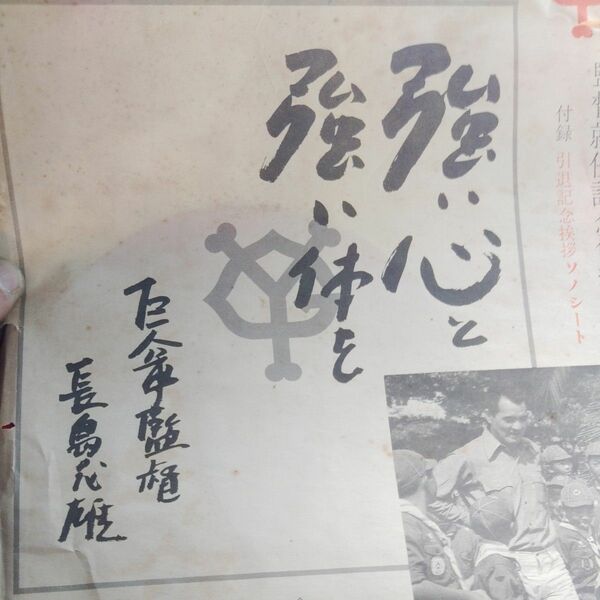 監督就任記念
付録 引退記念挨拶ソノシート
強い心と
強い体を
巨人軍監督
長島茂雄